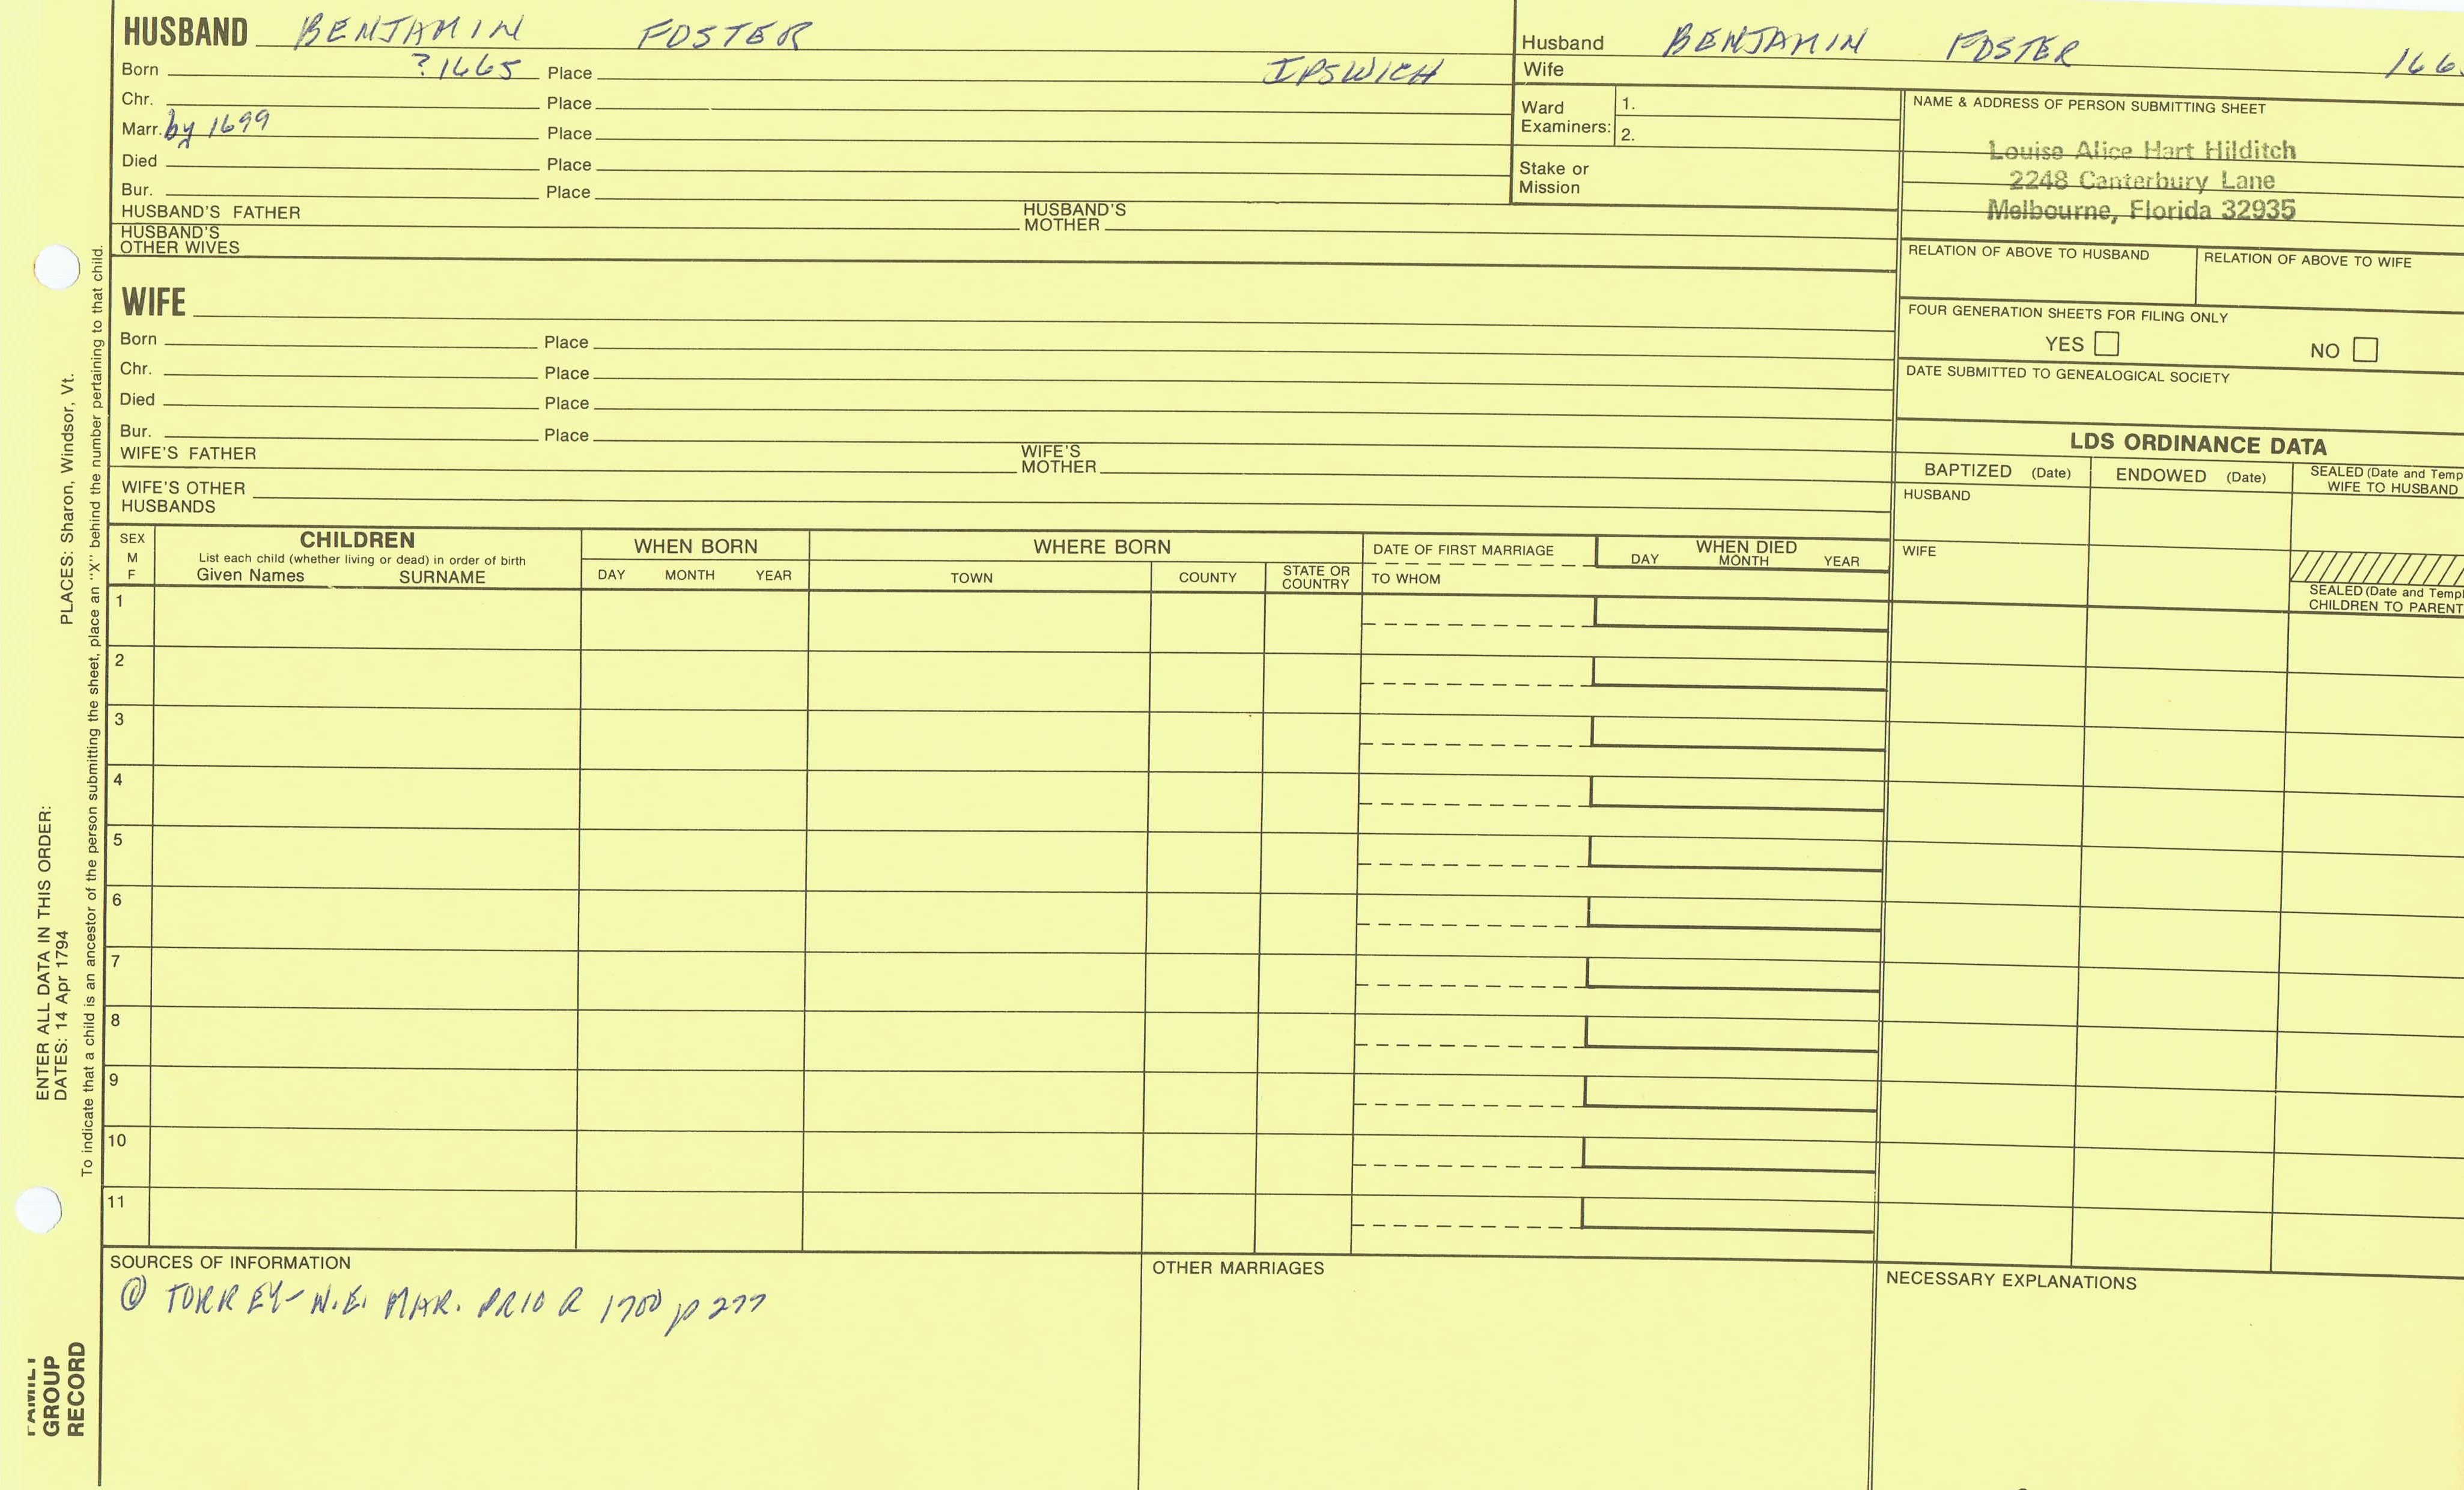 HUSBAND BENJAMIN FOSTER
Born ?1665 Place IPSWICH
Chr. Place
Marr. by 1699 Place
Died Place
Bur. Place
HUSBAND'S FATHER HUSBAND'S MOTHER
HUSBAND'S OTHER WIVES
Husband BENJAMIN FOSTER 166
Wife
Ward Examiners: 1.
2.
Stake or Mission
NAME & ADDRESS OF PERSON SUBMITTING SHEET
Louise Alice Hart Hilditch
2248 Canterbury Lane
Melbourne, Florida 32935
RELATION OF ABOVE TO HUSBAND RELATION OF ABOVE TO WIFE
FOUR GENERATION SHEETS FOR FILING ONLY
YES NO
DATE SUBMITTED TO GENEALOGICAL SOCIETY
WIFE
Born Place
Chr. Place
Died Place
Bur. Place
WIFE'S FATHER WIFE'S MOTHER
WIFE'S OTHER HUSBANDS
LDS ORDINANCE DATA
BAPTIZED (Date) ENDOWED (Date) SEALED (Date and Temp
WIFE TO HUSBAND
HUSBAND
WIFE
SEALED (Date and Templ
CHILDREN TO PARENT
SEX M F
CHILDREN
List each child (whether living or dead) in order of birth
Given Names SURNAME
WHEN BORN
DAY MONTH YEAR
WHERE BORN
TOWN COUNTY STATE OR COUNTRY
DATE OF FIRST MARRIAGE
TO WHOM
WHEN DIED
DAY MONTH YEAR
1
2
3
4
5
6
7
8
9
10
11
SOURCES OF INFORMATION
@ TORREY- N.E. MAR. PRIOR 1700 p 277
OTHER MARRIAGES
NECESSARY EXPLANATIONS
ENTER ALL DATA IN THIS ORDER:
DATES: 14 Apr 1794 PLACES: Sharon, Windsor, Vt.
To indicate that a child is an ancestor of the person submitting the sheet, place an "X" behind the number pertaining to that child.
FAMILY
GROUP
RECORD